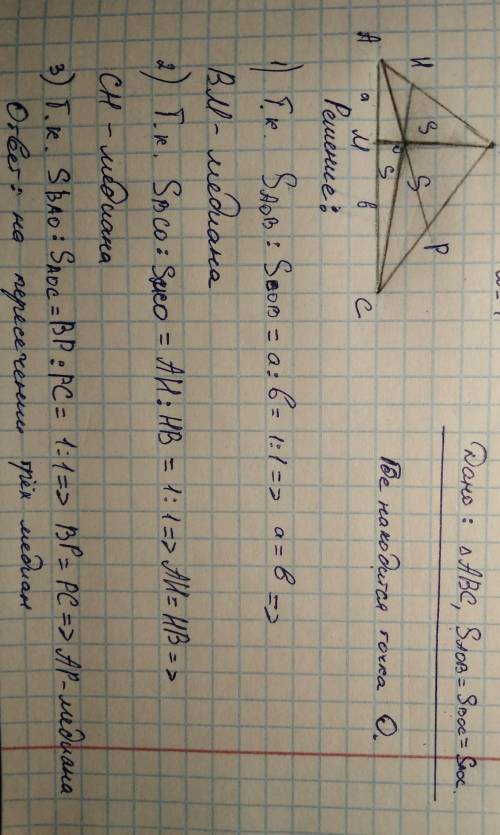 Дано: △ ABC, SAOB = SBOC = SAOC.
Где находится точка O.
A
H
P
C
M
O
S
S
S
a
в
Решение:
1) Т.к. SAOB : SCOB = a : в = 1:1 => a = в =>
BM - медиана
2) Т.к. SBCO : SACO = AH : HB = 1:1 => AH = HB =>
CH - медиана
3) Т.к. SBAO : SAOC = BP : PC = 1:1 => BP = PC => AP - медиана
Ответ: на пересечении трёх медиан